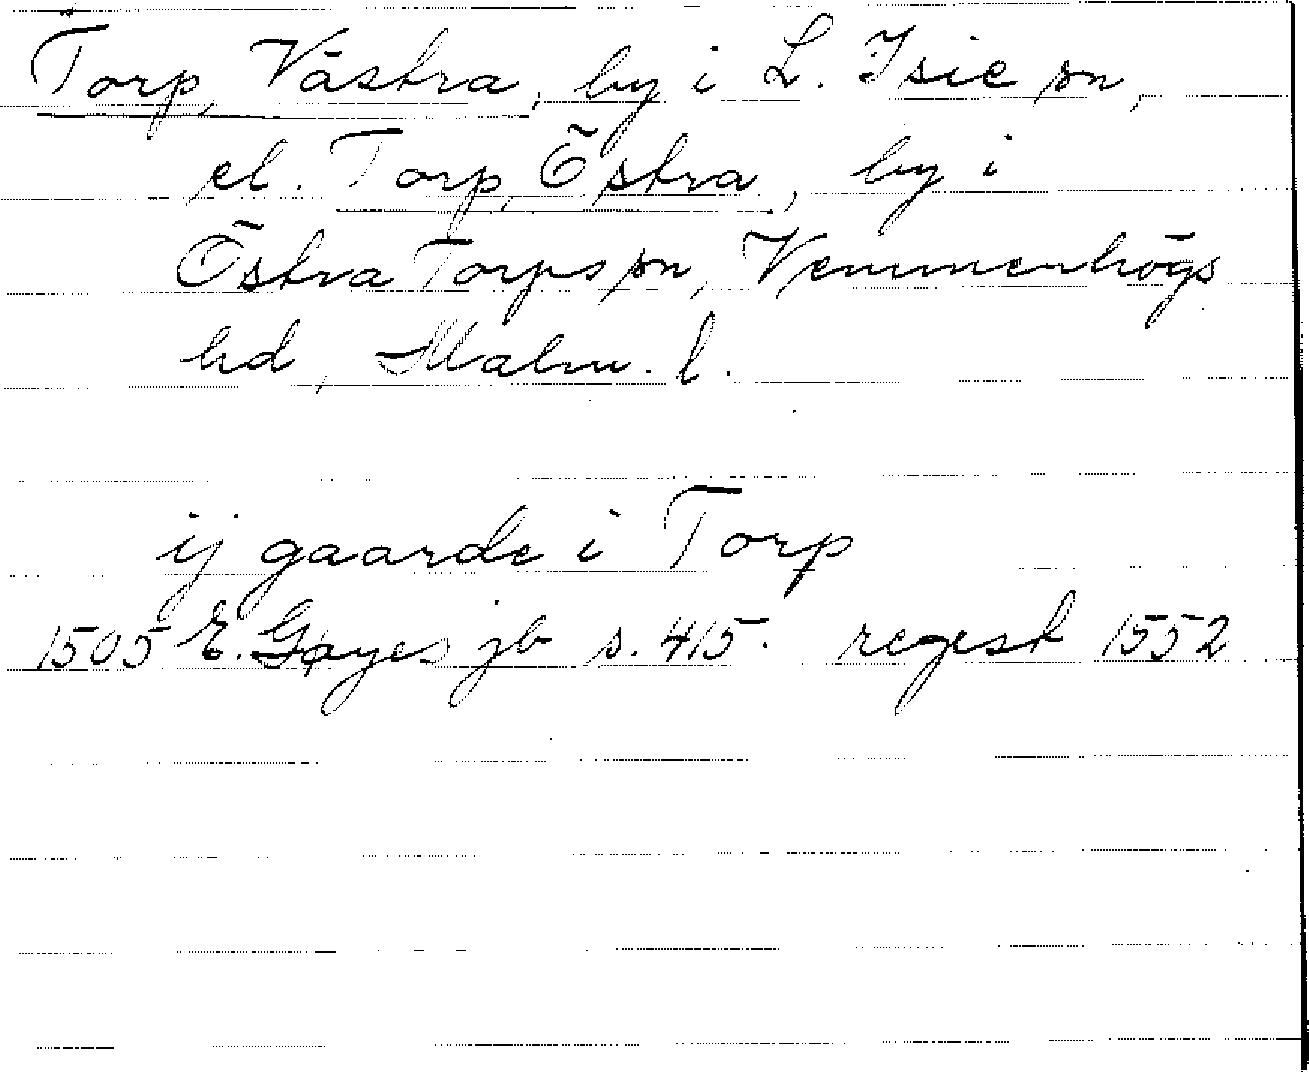 Torp, Västra, by i L. Isie sn,
el. Torp, Östra, by i
Östra Torps sn, Vemmenhögs
hd, Malm. l.
ij gaarde i Torp
1505 E. Gøyes jb s. 415. regest 1552